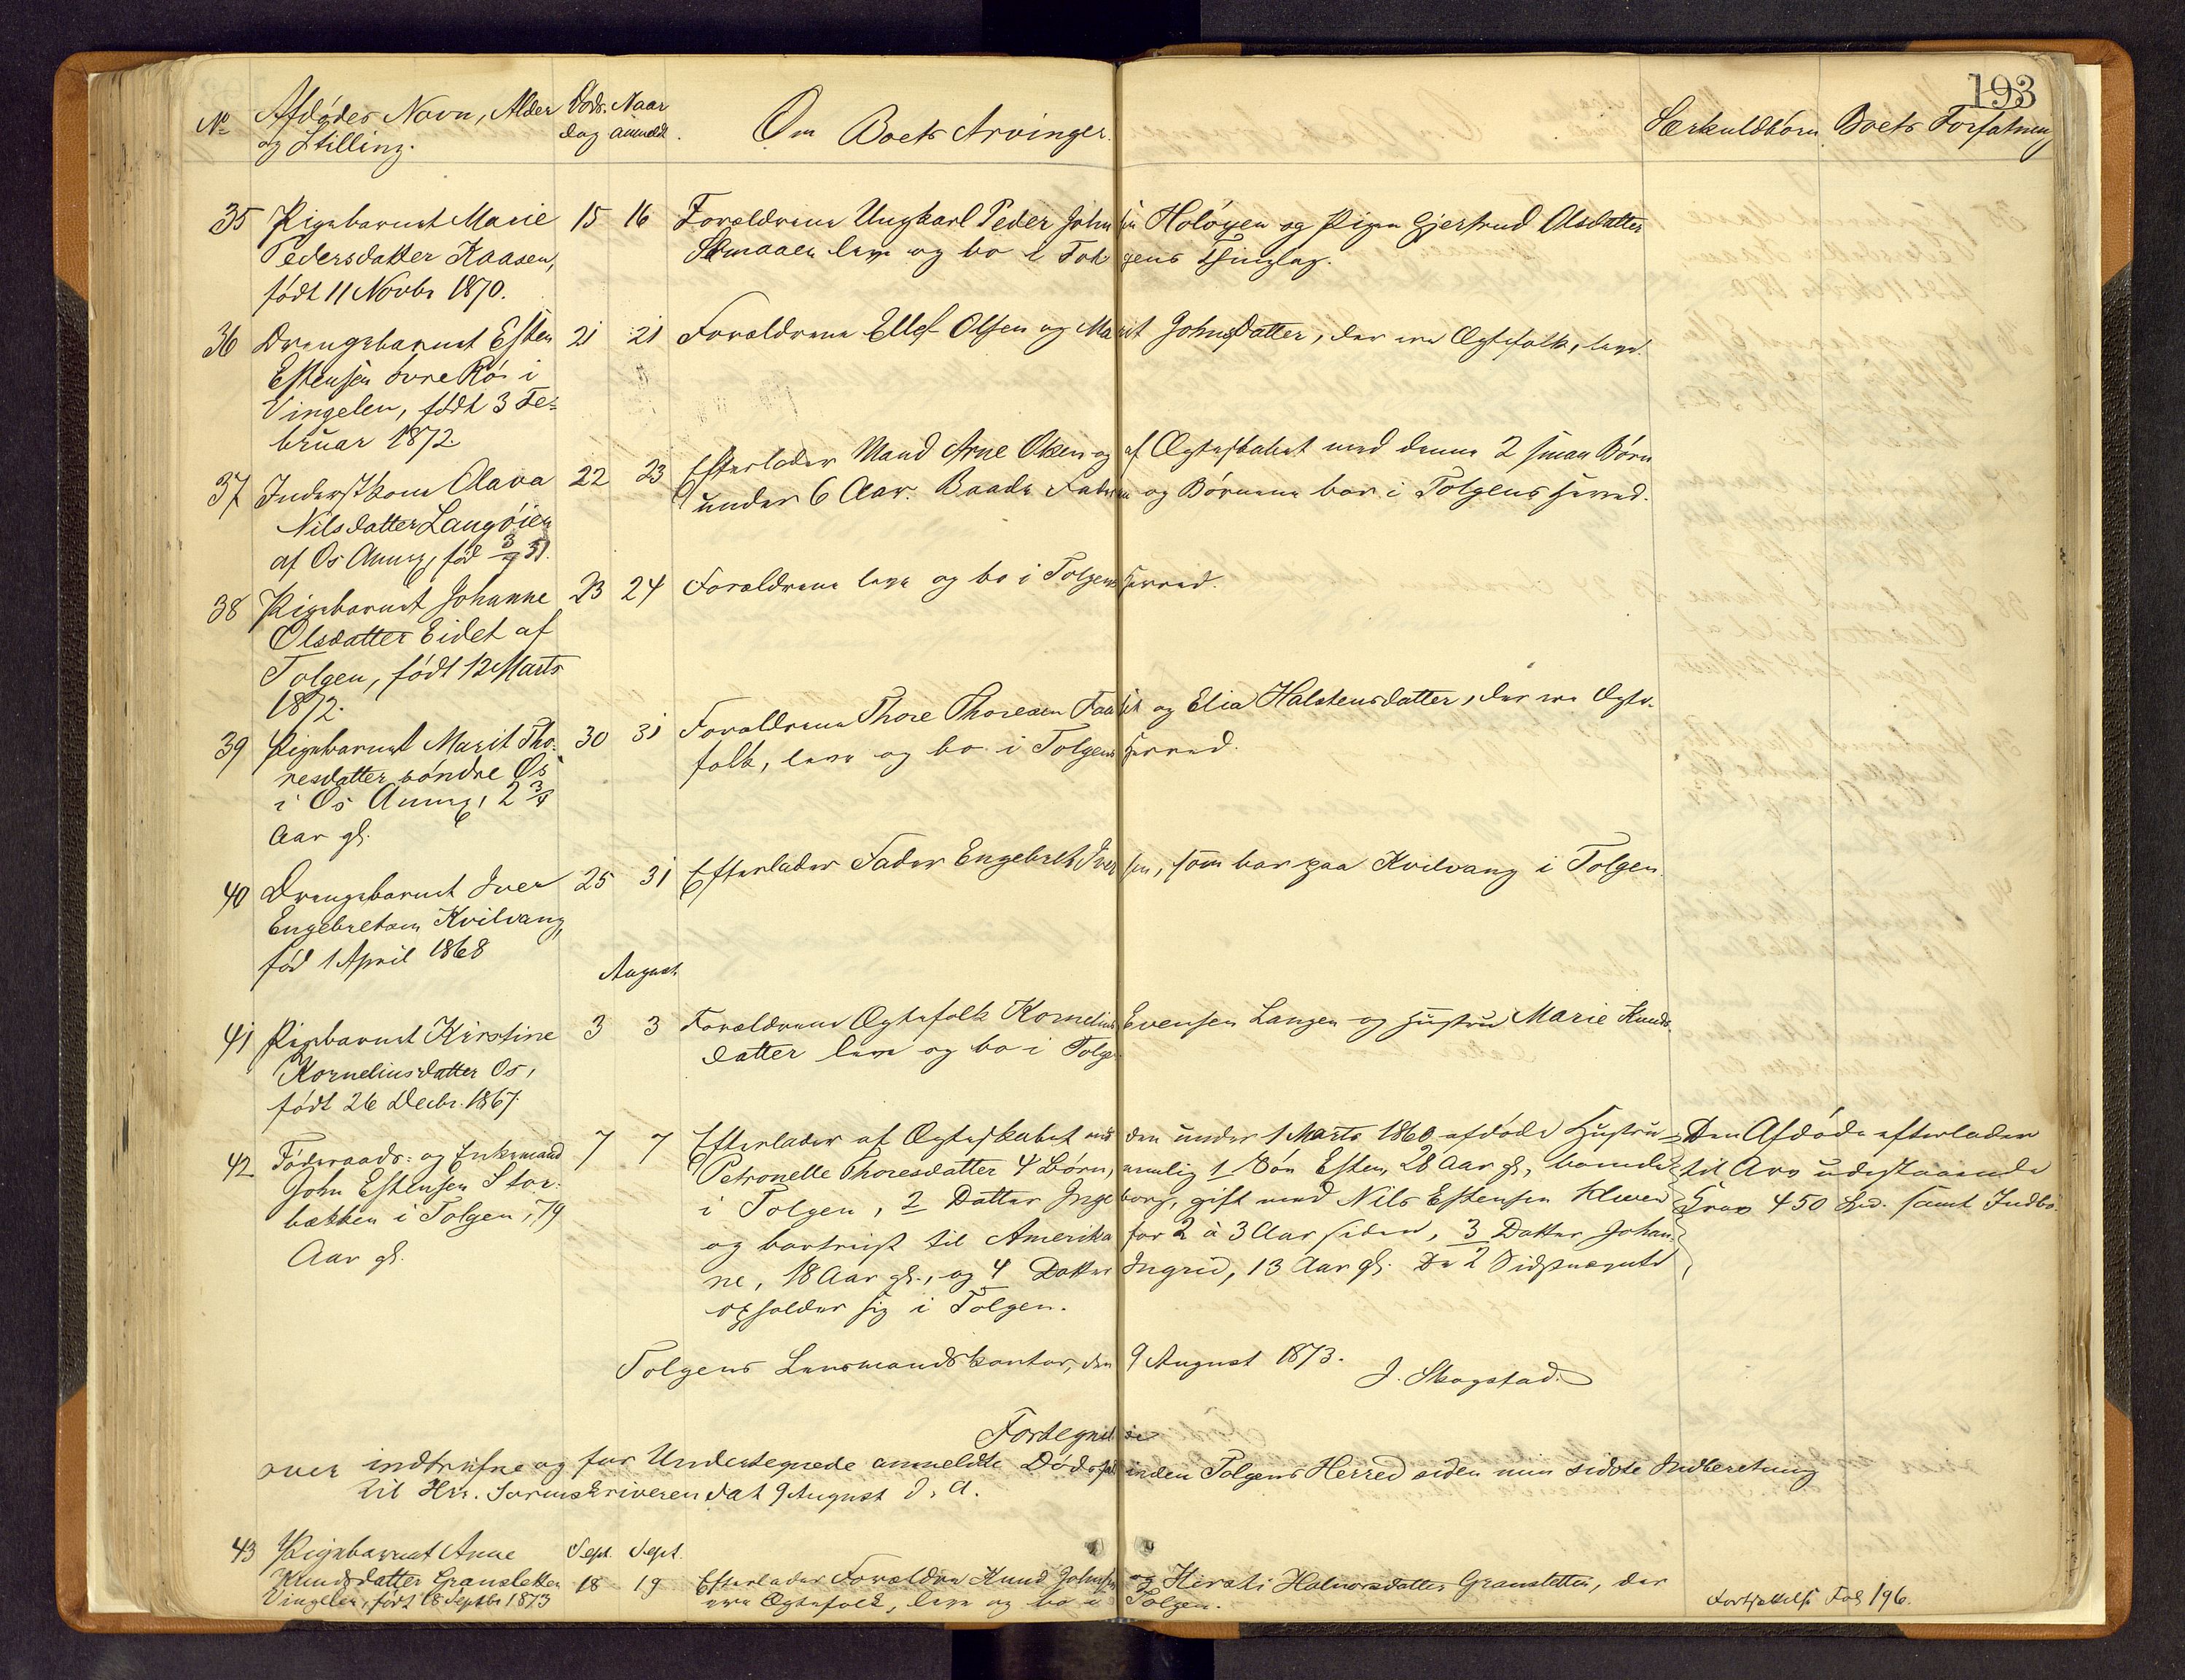 193
No Afdødes Navn, Alder og Stilling. Døds- dag Naar anmeldt. Om Boets Arvinger. Særkuldbørn Boets Forfatning
35 Pigebarnet Marie 15 16 Forældrene Ungkarl Peder Johnsen Holøyen og Pigen Gjertrud Olsdatter
Pedersdatter Kaasen, leve og bo i Tolgens Thinglag.
født 11 Novbr 1870.
36 Drengebarnet Esten 21 21 Forældrene Ellef Olsen og Marit Johnsdatter, der ere Ægtefolk, leve.
Estensen øvre Røe i
Vingelen, født 3 Fe-
bruar 1872.
37 Inderstkone Olava 22 23 Efterlader Mand Arne Olsen og af Ægteskabet med denne 2 smaa Børn
Nilsdatter Langøien under 6 Aar. Baade Faderen og Børnene bor i Tolgens Herred.
af Os Annex, fød
38 Pigebarnet Johanne 23 24 Forældrene leve og bo i Tolgens Herred.
Olsdatter Eidet af
Tolgen, født 12 Marts
1872.
39 Pigebarnet Marit Tho- 30 31 Forældrene Thore Thoresen og Elia Halstensdatter, der ere Ægte-
resdatter søndre Os folk, leve og bo i Tolgens Herred.
i Os Annex, 2 3/4
Aar gl.
40 Drengebarnet Iver 25 31 Efterlader Fader Engebret Iversen, som bor paa Kvilvang i Tolgen.
Engebretsen Kvilvang,
fød 1 April 1868
August
41 Pigebarnet Kirstine 3 3 Forældrene Ægtefolk Kornelius Evensen Langen og Hustru Marie Knuds-
Korneliusdatter Os, datter leve og bo i Tolgen
født 26 Decbr. 1867.
42 Føderaads- og Enkemand 7 7 Efterlader af Ægteskabet med den under 1 Marts 1860 afdøde Hustru Den Afdøde efterlader
John Estensen Stor- Petronelle Thoresdatter 4 Børn, nemlig 1 Søn Esten, 28 Aar gl., boende til Arv udestaaende
bækken i Tolgen, 79 i Tolgen, 2 Datter Ingeborg, gift med Nils Estensen og bortreist til Amerika for 2 à 3 Aar siden, 3 Datter Johan- Krav 450 Spd. samt Indbo.
Aar gl. ne, 18 Aar gl., og 4 Datter Ingrid, 13 Aar gl. De 2 Sidstnævnte
opholder sig i Tolgen.
Tolgens Lensmandskontor, den 9 August 1873.
J. Skogstad.
Fortegnelse
over indtrufne og for Undertegnede anmeldte Dødsfald inden Tolgens Herred siden min sidste Indberetning
til Hrr. Sorenskriveren dat 9 August d. A.
43 Pigebarnet Anne Sept. Sept.
Knudsdatter Gransletten 18 19 Efterlader Forældre Knud Johnsen og Kirsti Halvorsdatter Gransletten, der
Vingelen, født 18 Septbr 1873 ere Ægtefolk, leve og bo i Tolgen.
Fortsættelse Fol 196.